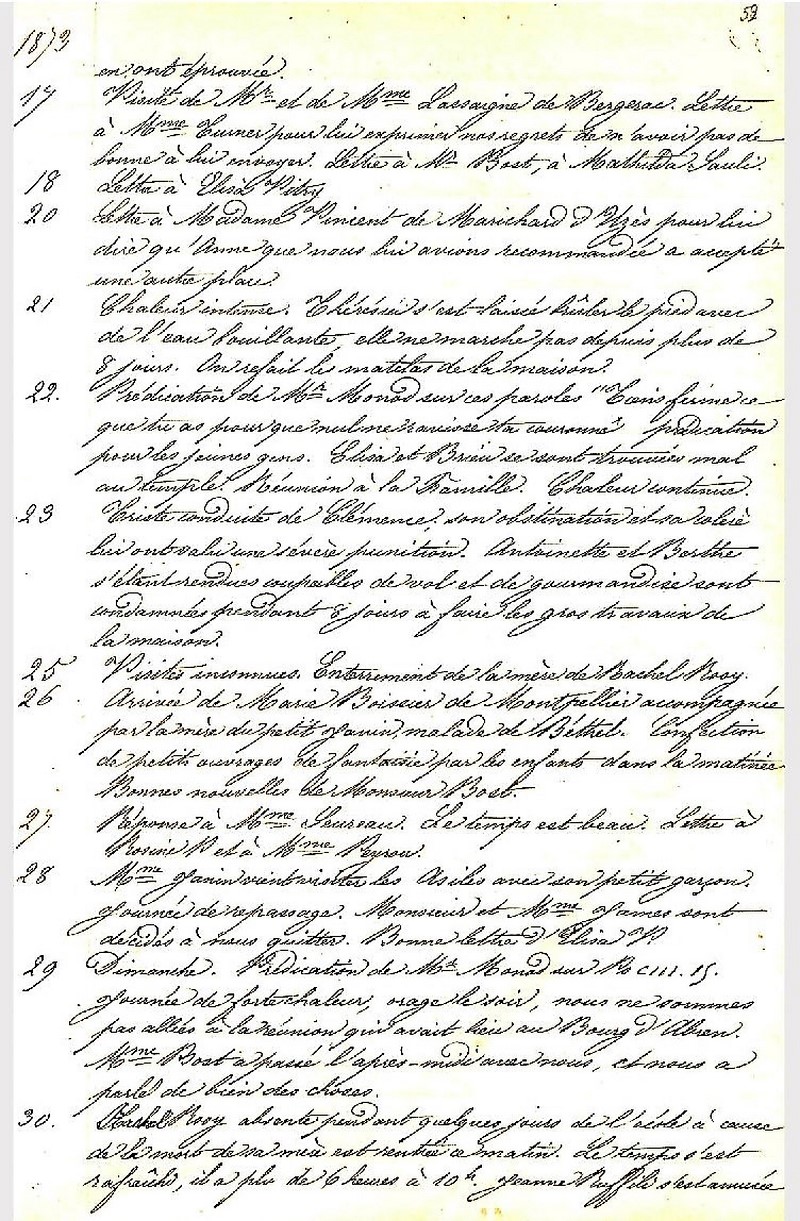 59
1873
en ont éprouvée.
17 Visite de Mr et de Mme Lassaigne de Bergerac. Lettre
à Mme Turner pour lui exprimer nos regrets de n'avoir pas de
bonne à lui envoyer. Lettre à Mr Bost, à Mathilda Sauli.
18 Lettre à Elisa Vitry
20 Lettre à Madame Vincent de Marichard d'Uzès pour lui
dire qu'Anne que nous lui avions recommandée a accepté
une autre place.
21 Chaleur intense. Thérésie s'est laissé brûler le pied avec
de l'eau bouillante, elle ne marche pas depuis plus de
8 jours. On refait les matelas de la maison.
22. Prédication de Mr Monod sur ces paroles "Tiens ferme ce
que tu as pour que nul ne ravisse ta couronne" prédication
pour les jeunes gens. Elisa et Brieu se sont trouvées mal
au temple. Réunion à la Famille. Chaleur continue.
23 Triste conduite de Clémence. son obstination et sa colère
lui ont valu une sévère punition. Antoinette et Berthe
s'étant rendues coupables de vol et de gourmandise sont
condamnées pendant 8 jours à faire les gros travaux de
la maison.
25 Visites inconnues. Enterrement de la mère de Rachel Rooy.
26 Arrivée de Marie Boissier de Montpellier accompagnée
par la mère du petit Janin, malade de Béthel. Confection
de petits ouvrages de fantaisie par les enfants dans la matinée
Bonnes nouvelles de Monsieur Bost.
27. Réponse à Mme Seureau. Le temps est beau. Lettre à
Rosine P et à Mme Peyrou.
28 Mme Janin vient visiter les Asiles avec son petit garçon.
Journée de repassage. Monsieur et Mme James sont
décidés à nous quitter. Bonne lettre d'Elisa V.
29 Dimanche. Prédication de Mr Monod sur Ps CIII. 15.
Journée de forte chaleur, orage le soir, nous ne sommes
pas allées à la réunion qui avait lieu au Bourg d'Abren.
Mme Bost a passé l'après-midi avec nous, et nous a
parlé de bien des choses.
30. Rachel Rooy absente pendant quelques jours de l'école à cause
de la mort de sa mère est rentrée ce matin. Le temps s'est
rafraîchi, il a plu de 6 heures à 10h. Jeanne Raffili s'est amusée